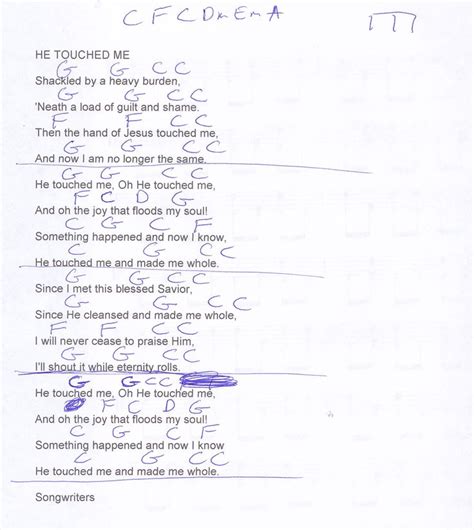 C F C Dm Em A
HE TOUCHED ME
G G C C
Shackled by a heavy burden,
G G C C
'Neath a load of guilt and shame.
F F C C
Then the hand of Jesus touched me,
G G C C
And now I am no longer the same.
G G C C
He touched me, Oh He touched me,
F C D G
And oh the joy that floods my soul!
C G C F
Something happened and now I know,
C G C C
He touched me and made me whole.
G G C C
Since I met this blessed Savior,
G G C C
Since He cleansed and made me whole,
F F C C
I will never cease to praise Him,
G G C C
I'll shout it while eternity rolls.
G G C C
He touched me, Oh He touched me,
F C D G
And oh the joy that floods my soul!
C G C F
Something happened and now I know
C G C C
He touched me and made me whole.
Songwriters